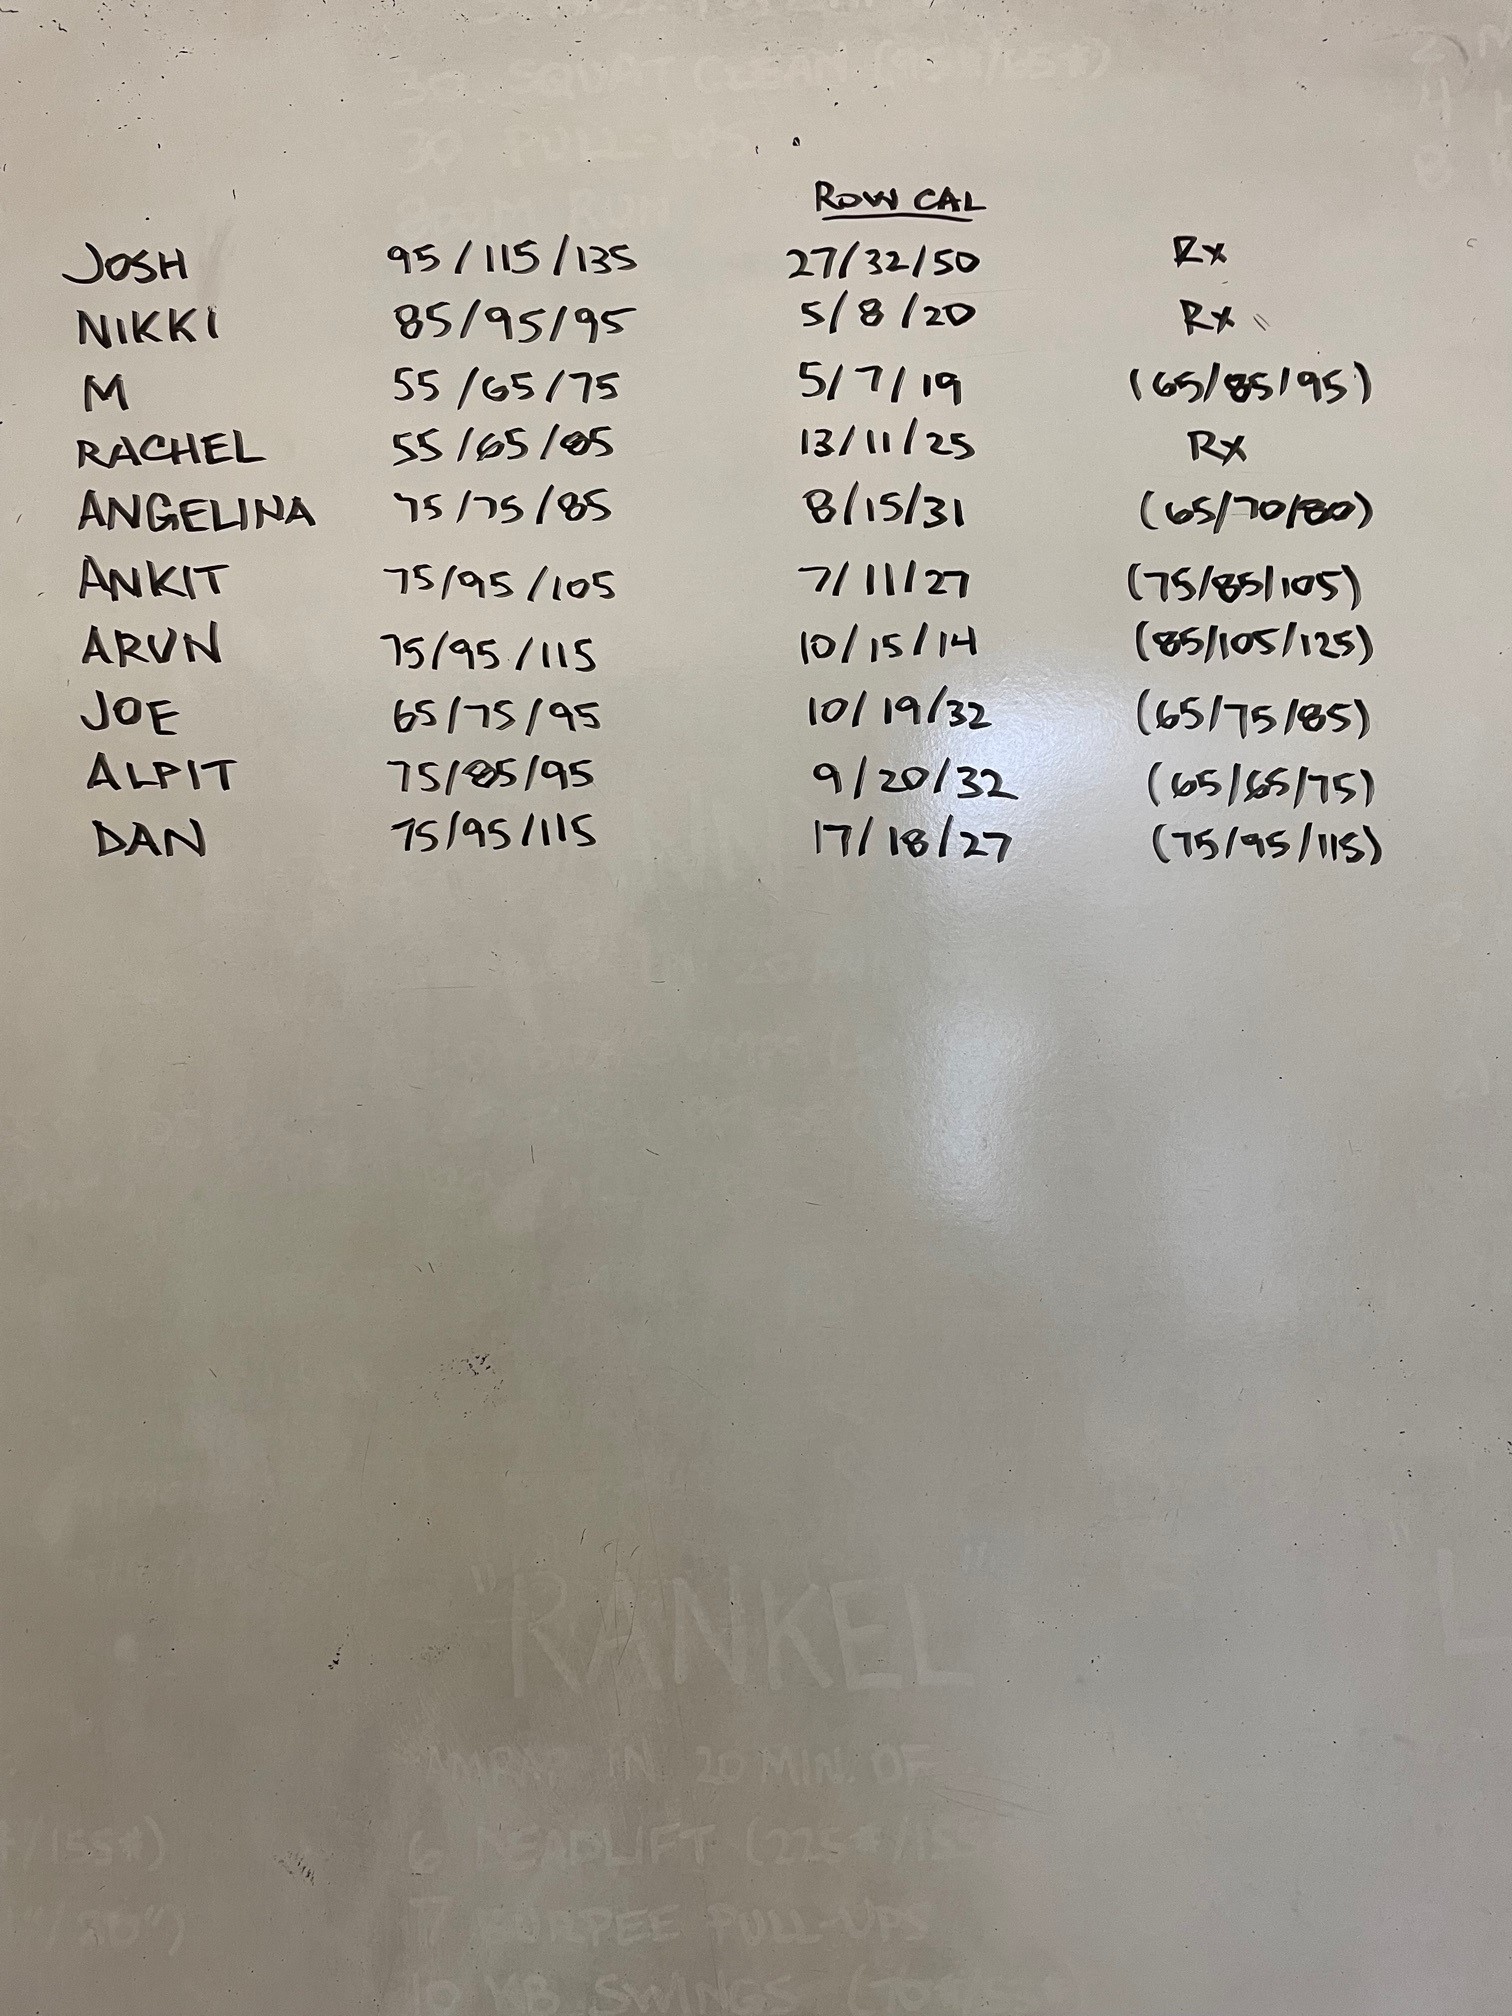 30 SQUAT CLEAN
30 PULL-UPS
RUN
ROW CAL
JOSH 95/115/135 27/32/50 Rx
NIKKI 85/95/95 5/8/20 Rx
M 55/65/75 5/7/19 (65/85/95)
RACHEL 55/65/85 13/11/25 Rx
ANGELINA 75/75/85 8/15/31 (65/70/80)
ANKIT 75/95/105 7/11/27 (75/85/105)
ARUN 75/95/115 10/15/14 (85/105/125)
JOE 65/75/95 10/19/32 (65/75/85)
ALPIT 75/85/95 9/20/32 (65/65/75)
DAN 75/95/115 17/18/27 (75/95/115)
"RANKEL"
AMRAP IN 20 MIN. OF
/155#) 6 DEADLIFT (225#/155
/20") 7 BURPEE PULL-UPS
10 KB SWINGS (70#